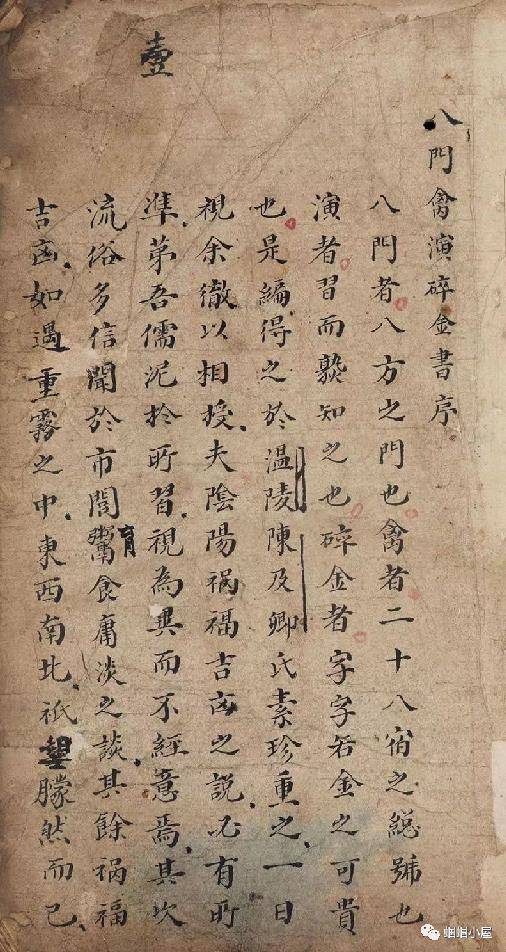 八門禽演碎金書序
八門者八方之門也禽者二十八宿之緫號也
演者習而熟知之也碎金者字字若金之可貴
也是編得之於温陵陳及卿氏素珍重之一日
視余徹以相授夫陰陽禍福吉凶之説必有所
準第吾儒泥於所習視為異而不經意焉其次
流俗多信聞於市閭鬻育食庸淡之談其餘禍福
吉凶如遇重霧之中東西南北祇朦然而已
壹
蝈蝈小屋